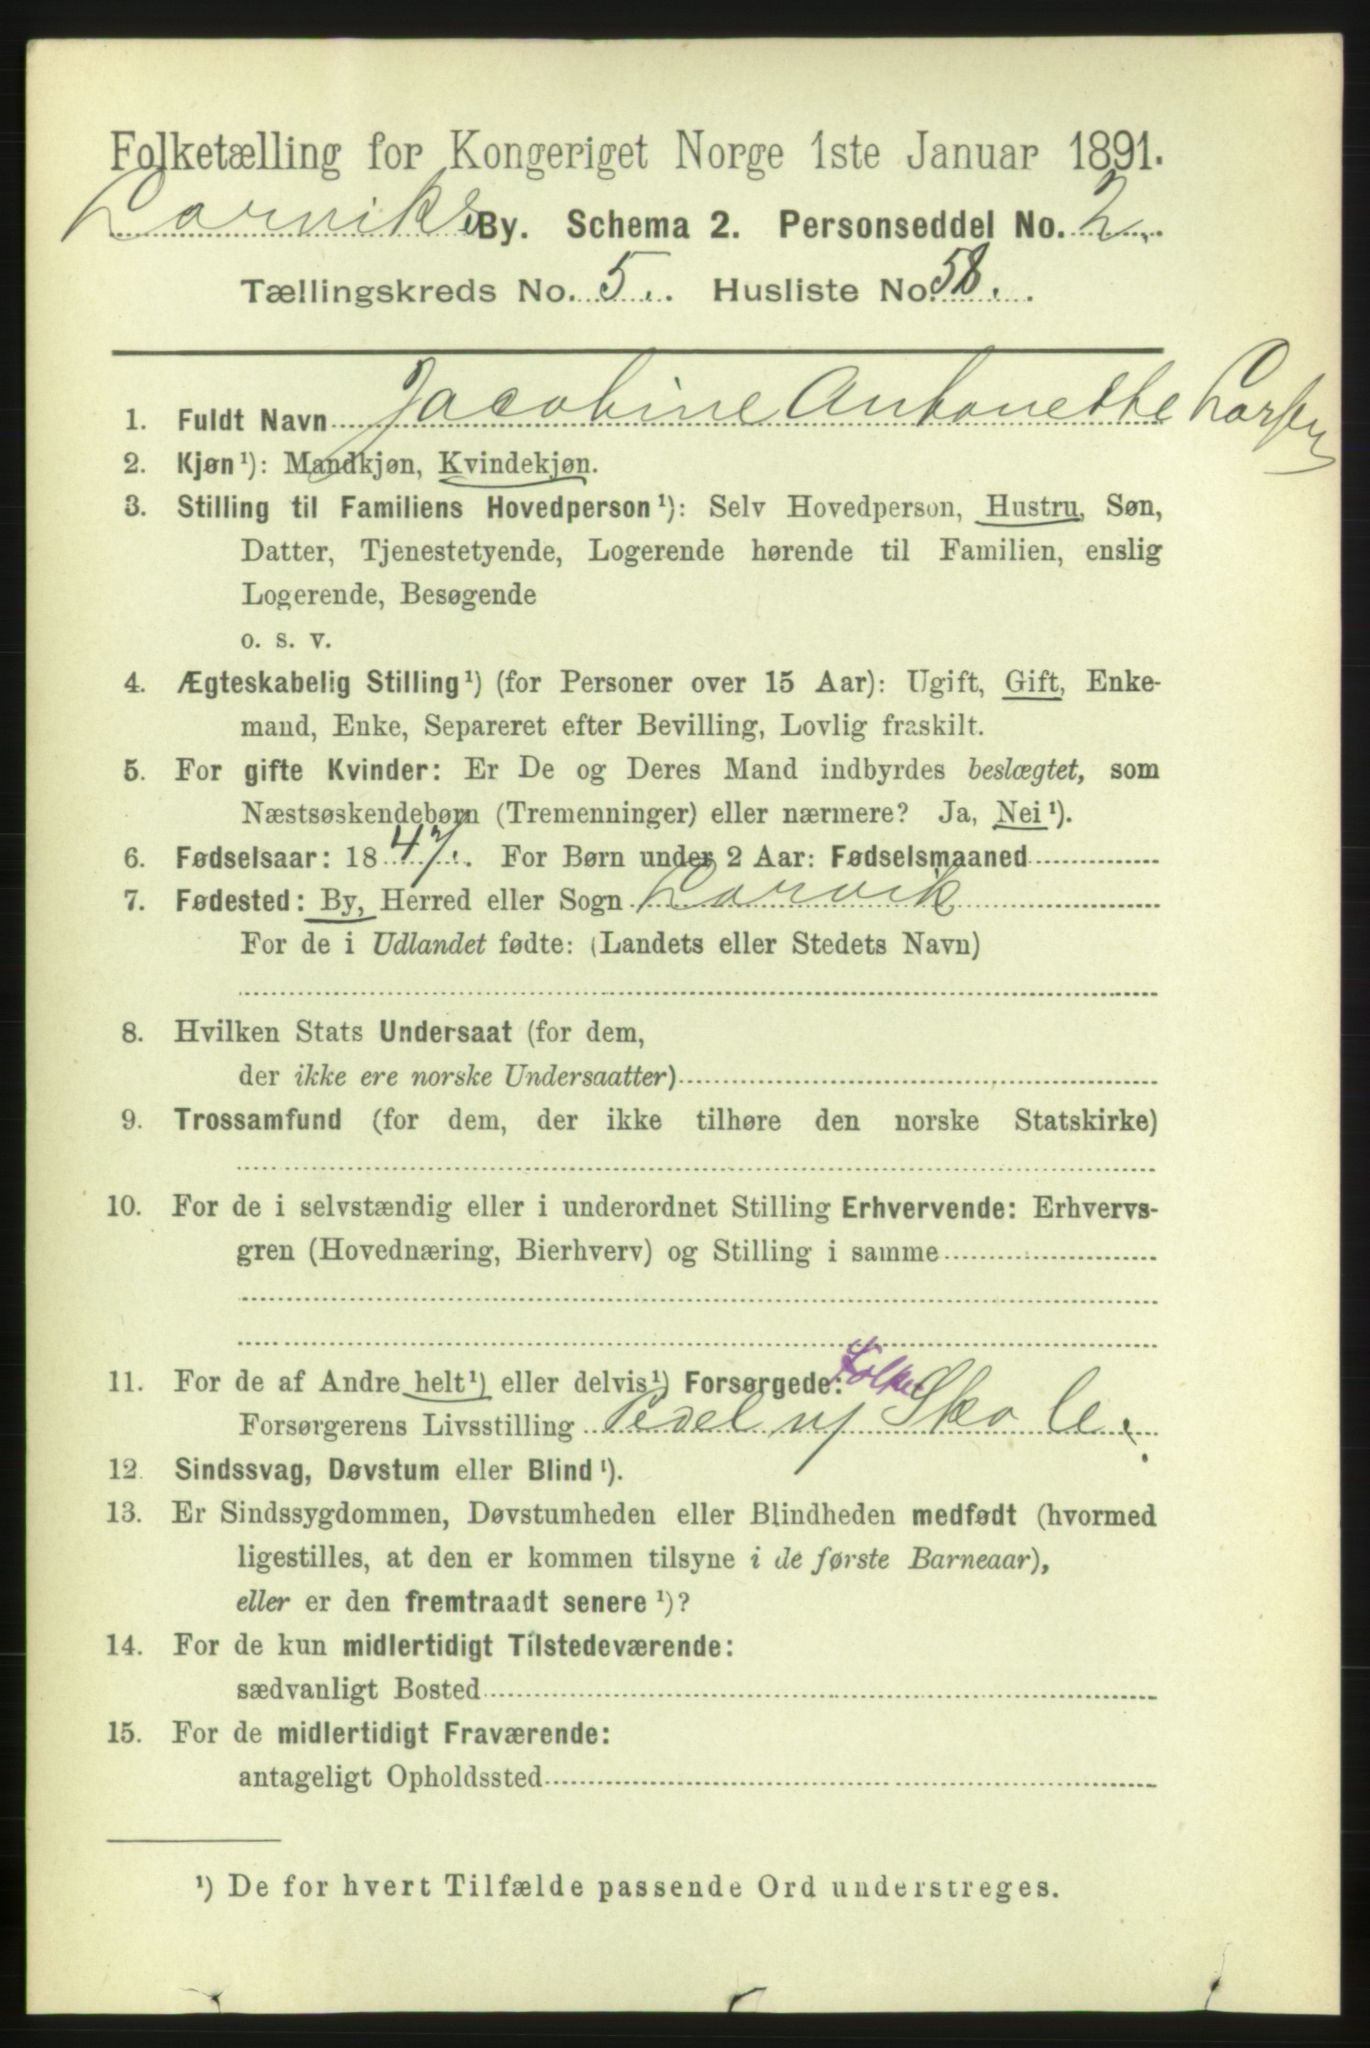 Folketælling for Kongeriget Norge 1ste Januar 1891.
Larviks By. Schema 2. Personseddel No. 2.
Tællingskreds No. 5. Husliste No. 58.
1. Fuldt Navn Jacobine Antonette Larsen
2. Kjøn¹): Mandkjøn, Kvindekjøn.
3. Stilling til Familiens Hovedperson¹): Selv Hovedperson, Hustru, Søn,
Datter, Tjenestetyende, Logerende hørende til Familien, enslig
Logerende, Besøgende
o. s. v.
4. Ægteskabelig Stilling¹) (for Personer over 15 Aar): Ugift, Gift, Enke-
mand, Enke, Separeret efter Bevilling, Lovlig fraskilt.
5. For gifte Kvinder: Er De og Deres Mand indbyrdes beslægtet, som
Næstsøskendebørn (Tremenninger) eller nærmere? Ja, Nei¹).
6. Fødselsaar: 1847. For Børn under 2 Aar: Fødselsmaaned
7. Fødested: By, Herred eller Sogn Larvik
For de i Udlandet fødte: (Landets eller Stedets Navn)
8. Hvilken Stats Undersaat (for dem,
der ikke ere norske Undersaatter)
9. Trossamfund (for dem, der ikke tilhøre den norske Statskirke)
10. For de i selvstændig eller i underordnet Stilling Erhvervende: Erhvervs-
gren (Hovednæring, Bierhverv) og Stilling i samme
11. For de af Andre helt¹) eller delvis¹) Forsørgede: Folke
Forsørgerens Livsstilling Pedel v/ Skole.
12. Sindssvag, Døvstum eller Blind¹).
13. Er Sindssygdommen, Døvstumheden eller Blindheden medfødt (hvormed
ligestilles, at den er kommen tilsyne i de første Barneaar),
eller er den fremtraadt senere¹)?
14. For de kun midlertidigt Tilstedeværende:
sædvanligt Bosted
15. For de midlertidigt Fraværende:
antageligt Opholdssted
¹) De for hvert Tilfælde passende Ord understreges.